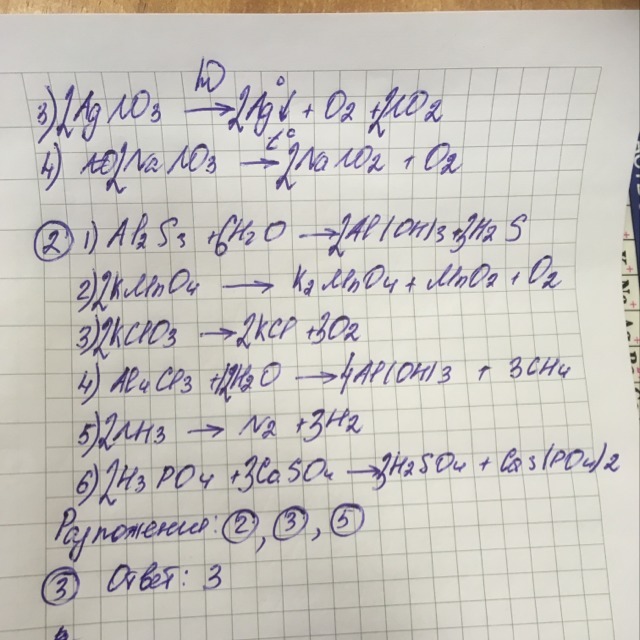 hν
3) 2AgNO3 → 2Ag↓ + O2 + 2NO2
t°
4) 2NaNO3 → 2NaNO2 + O2
② 1) Al2S3 + 6H2O → 2Al(OH)3 + 3H2S
2) 2KMnO4 → K2MnO4 + MnO2 + O2
3) 2KClO3 → 2KCl + 3O2
4) Al4Cl3 + 12H2O → 4Al(OH)3 + 3CH4
5) 2NH3 → N2 + 3H2
6) 2H3PO4 + 3CaSO4 → 3H2SO4 + Ca3(PO4)2
Разложения: ②, ③, ⑤
③ Ответ: 3